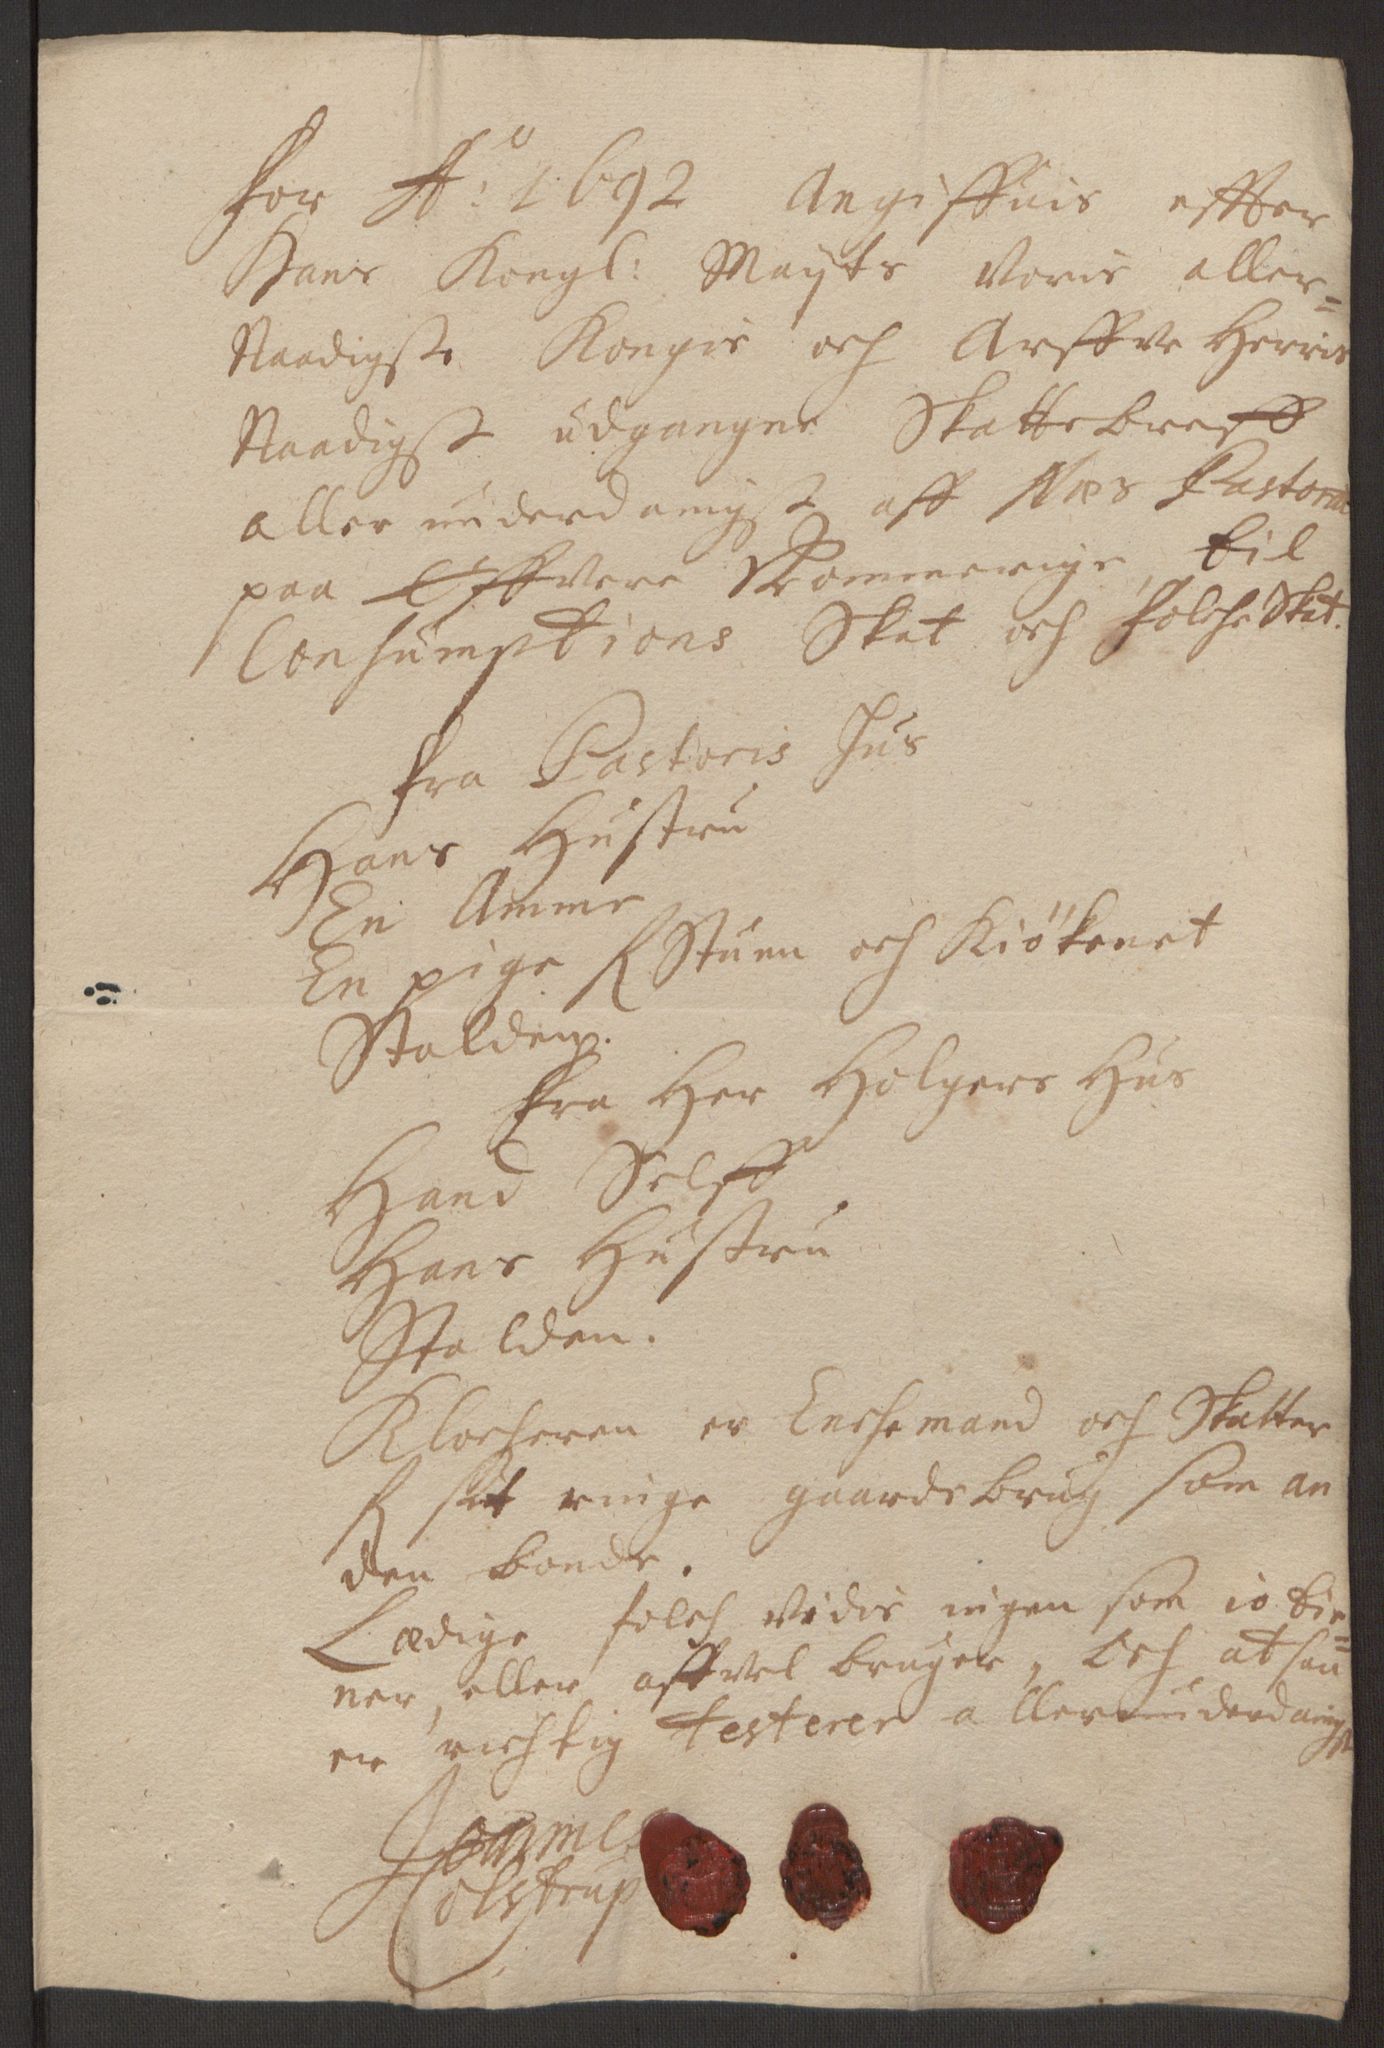 for Ao: 1692 Angiffuis effter
Hans Kongl: Mayts Voris aller=
Naadigste Kongis och Arffve Herris
Naadigst udgangne Skattebreff
allerunderdanigst aff Næs Pastorat
paa Øffvere Rommerige, til
Consumptions Skat och folche Skat.
fra Pastoris Hus
Hans Hustru
En Amme
En pige I Stuen och Kiökenet
Stalden.
fra Her Holgers Hus
Hand Selff
Hans Hustru
Stalden.
Klocheren er Enchemand och Skatter
I sit ringe gaardsbrug som an
den bonde.
Lædige folch vidis ingen som io tie=
ner, eller affvel bruger, Och at saa
er richtig testerer allerunderdanigst
Colstrup